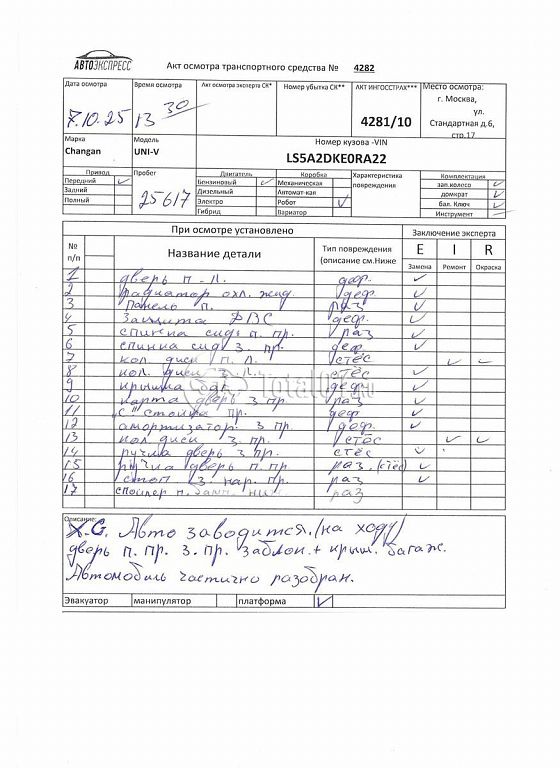 АВТОЭКСПРЕСС
Акт осмотра транспортного средства № 4282
Дата осмотра Время осмотра Акт осмотра эксперта СК* Номер убытка СК** АКТ ИНГОССТРАХ*** Место осмотра:
7.10.25 13 30 4281/10 г. Москва,
ул.
Стандартная д.6,
стр.17
Марка Модель Номер кузова -VIN
Changan UNI-V LS5A2DKE0RA22
Привод Пробег Двигатель Коробка Характеристика повреждения Комплектация
Передний ✓ 25617 Бензиновый ✓ Механическая зап.колесо ✓
Задний Дизельный Автомат-кая домкрат ✓
Полный Электро Робот ✓ бал. Ключ ✓
Гибрид Вариатор Инструмент –
При осмотре установлено Заключение эксперта
№ п/п Название детали Тип повреждения (описание см.Ниже E I R
Замена Ремонт Окраска
1 дверь п. Л. деф. ✓
2 радиатор охл. жид. деф. ✓
3 панель п. раз ✓
4 Защита ДВС деф. ✓
5 спинка сид. п. пр. раз ✓
6 спинка сид. з. пр. деф. ✓
7 кол. диск п. Л. стёс ✓ ✓
8 кол. диск з. Л. стёс ✓
9 крышка деф. ✓
10 карта дверь з. пр. раз ✓
11 "С" стойка пр. деф ✓
12 амортизатор з. пр деф. ✓
13 кол. диск з. пр. стёс ✓ ✓
14 ручка дверь з. пр. стёс ✓
15 ручка дверь п. пр раз. (стёс) ✓
16 стоп з. нар. пр. раз ✓
17 спойлер п. бамп. ниж. раз
TotalIt.ru
Описание:
Х.С. Авто заводится. (на ходу)
дверь п. пр. з. пр. заблок. + крыш. багаж.
Автомобиль частично разобран.
Эвакуатор манипулятор платформа ✓